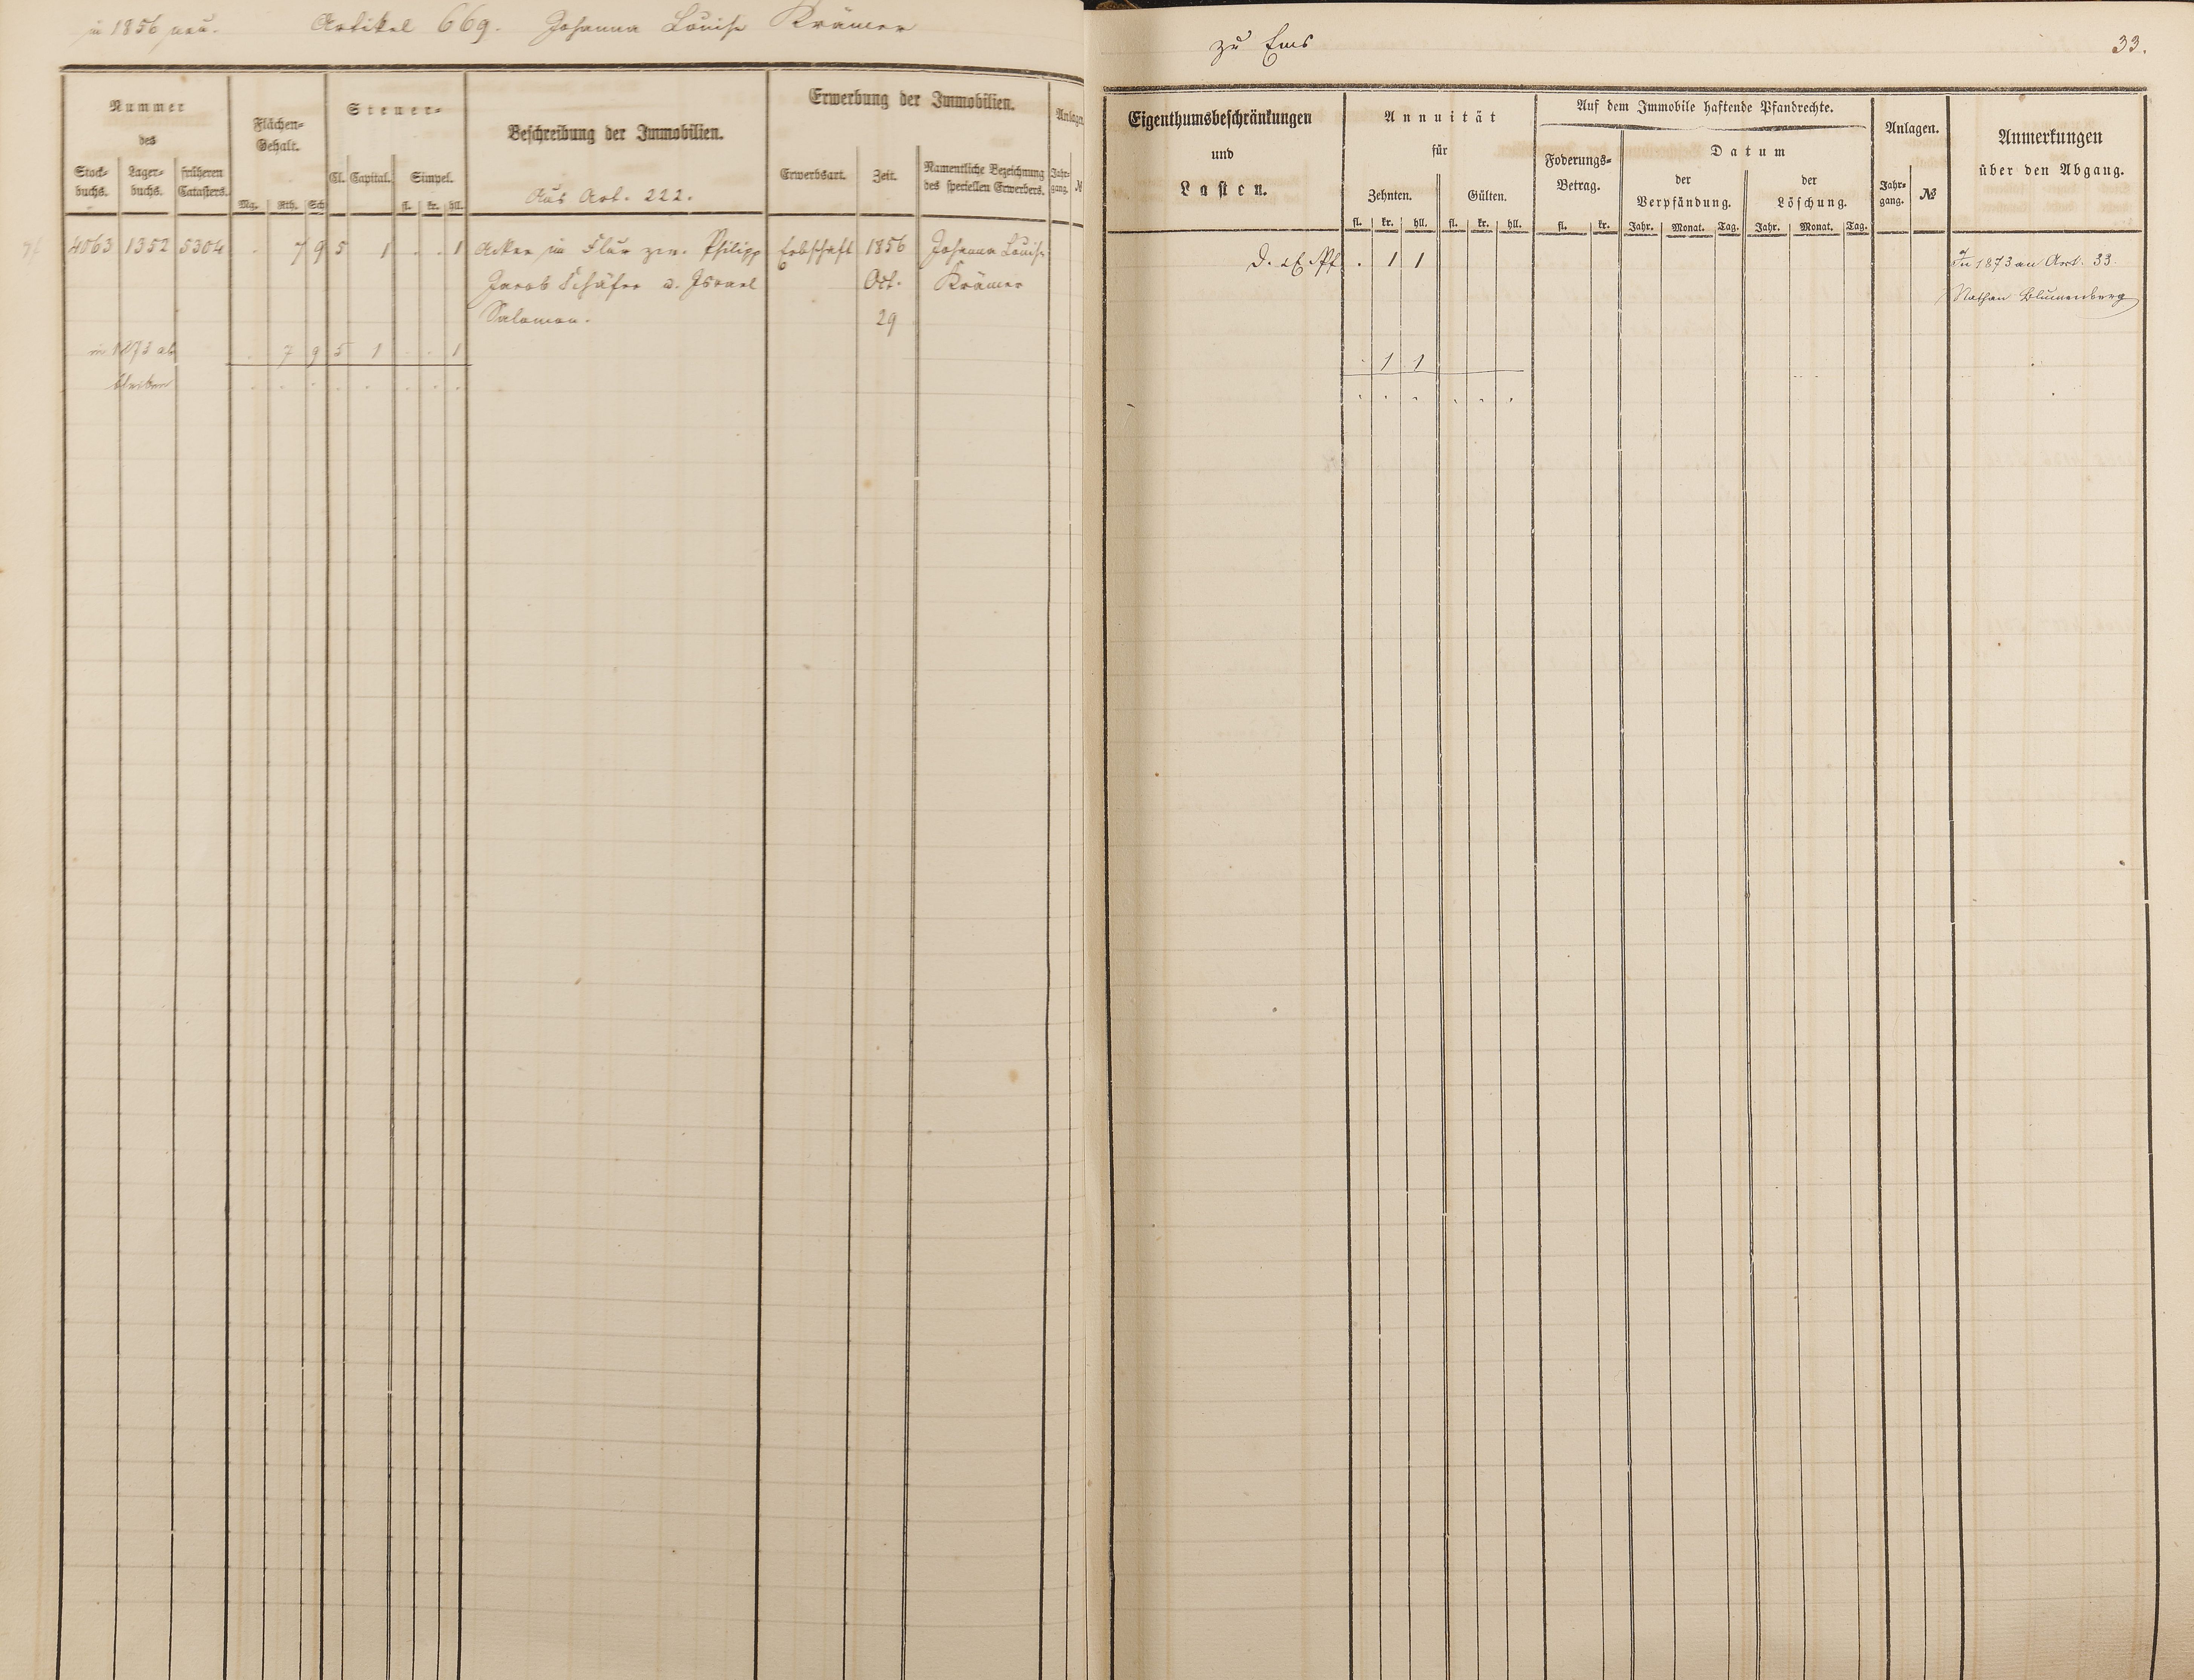 in 1856 neu. Artikel 669. Johanna Louise Krämer
zu Ems 33.
Nummer
des
Stock-
buchs.
Lager-
buchs.
früheren
Catasters.
Flächen-
Gehalt.
Mg. Rth. Sch
Steuer-
Cl. Capital. Simpel.
fl. kr. hll.
Beschreibung der Immobilien.
Aus Art. 222.
Erwerbung der Immobilien.
Erwerbsart. Zeit.
Namentliche Bezeichnung
des speciellen Erwerbers.
Anlagen
Jahr-
gang. №
Eigenthumsbeschränkungen
und
Lasten.
Annuität
für
Zehnten. Gülten.
fl. kr. hll. fl. kr. hll.
Auf dem Immobile haftende Pfandrechte.
Foderungs-
Betrag.
fl. kr.
Datum
der
Verpfändung.
Jahr. Monat. Tag.
der
Löschung.
Jahr. Monat. Tag.
Anlagen.
Jahr-
gang. №
Anmerkungen
über den Abgang.
4563 1352 5304 . 7 9 5 1 . . 1 Acker in Flur zw. Philipp Erbschaft 1856 Johanna Louise
Jacob Schäfer u. Israel Oct. Krämer
Salomon. 29
in 1873 ab . 7 9 5 1 . . 1
bleiben . . . . . . . .
. 1 1 In 1873 an Art. 33.
Nathan Blumenberg
. 1 1
. . . . . .